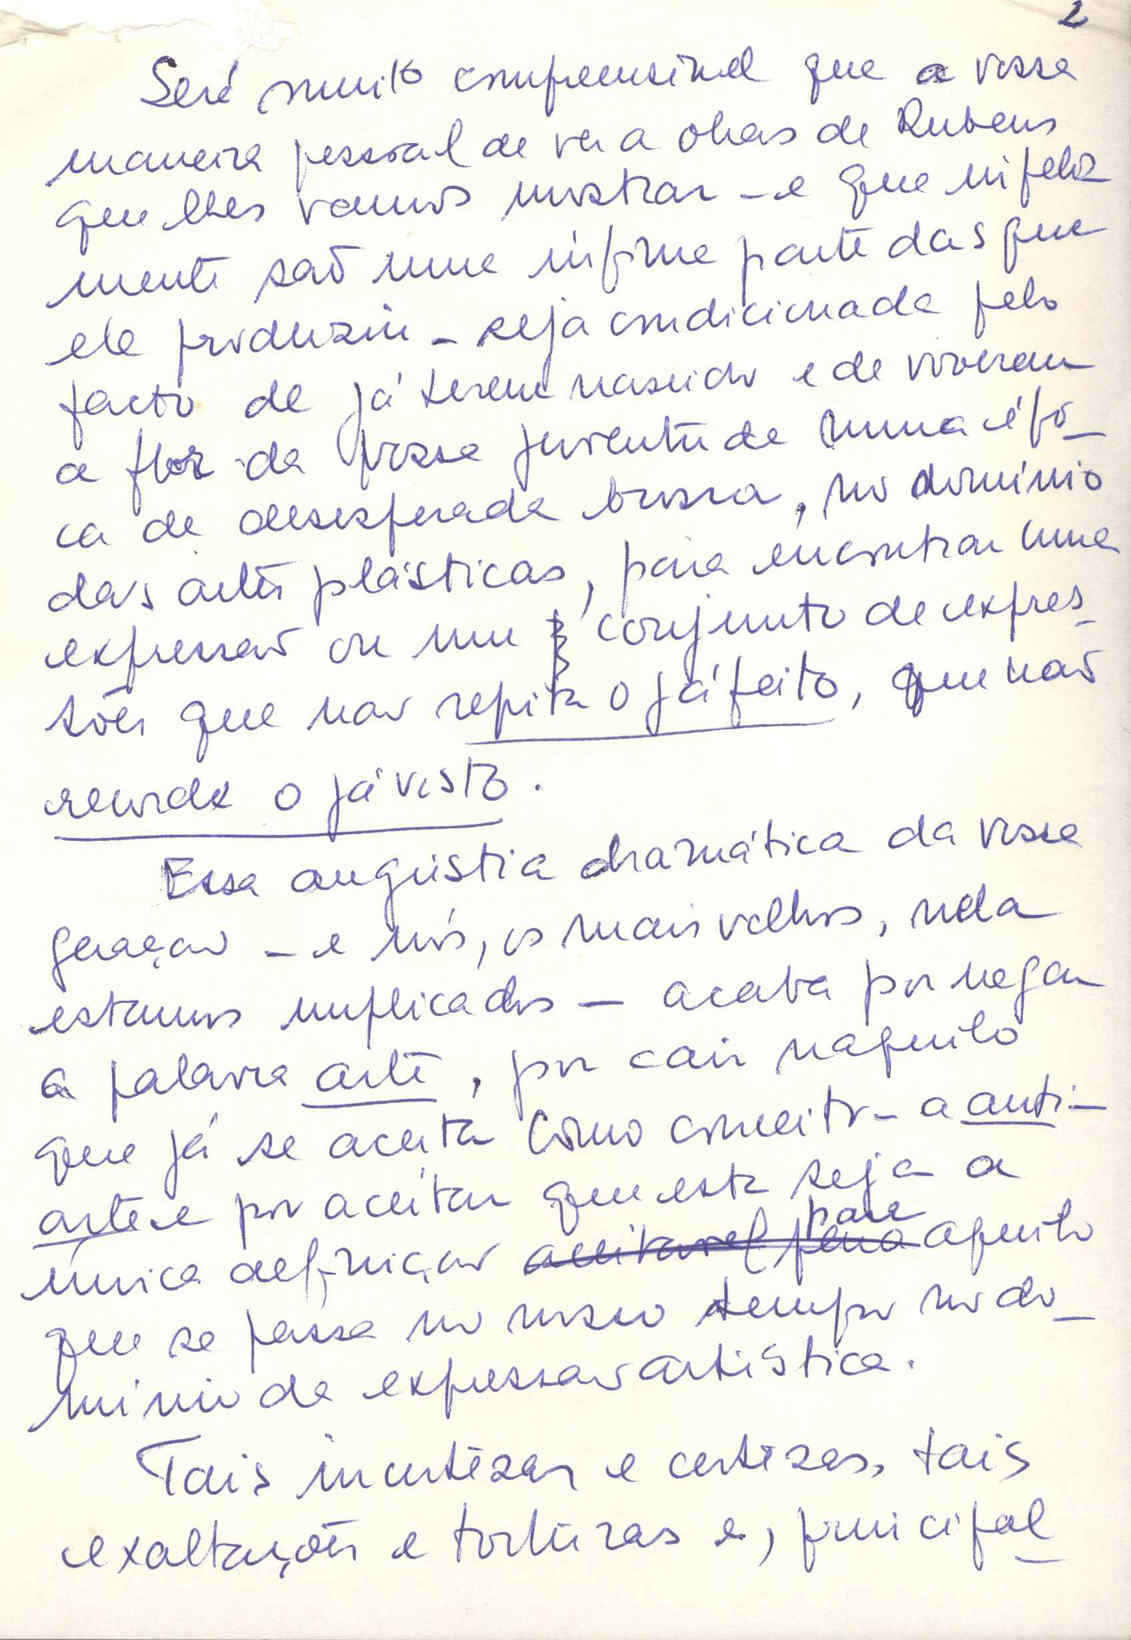 2
Será muito compreensível que a vossa
maneira pessoal de ver a obras de Rubens
que lhes vamos mostrar - e que infeliz
mente são uma ínfima parte das que
ele produziu - seja condicionada pelo
facto de já terem nascido e de viverem
a flor da vossa juventude numa épo-
ca de desesperada busca, no domínio
das artes plásticas, para encontrar uma
expressão ou um conjunto de expres-
sões que não repita o já feito, que não
recorde o já visto.
Essa angústia dramática da vossa
geração - e nós, os mais velhos, nela
estamos implicados - acaba por negar
a palavra arte, por cair naquilo
que já se aceita como conceito - a anti-
arte e por aceitar que esta seja a
para
única definição aceitavel para aquilo
que se passa no nosso tempo no do-
mínio da expressão artística.
Tais incertezas e certezas, tais
exaltações e torturas e, principal-